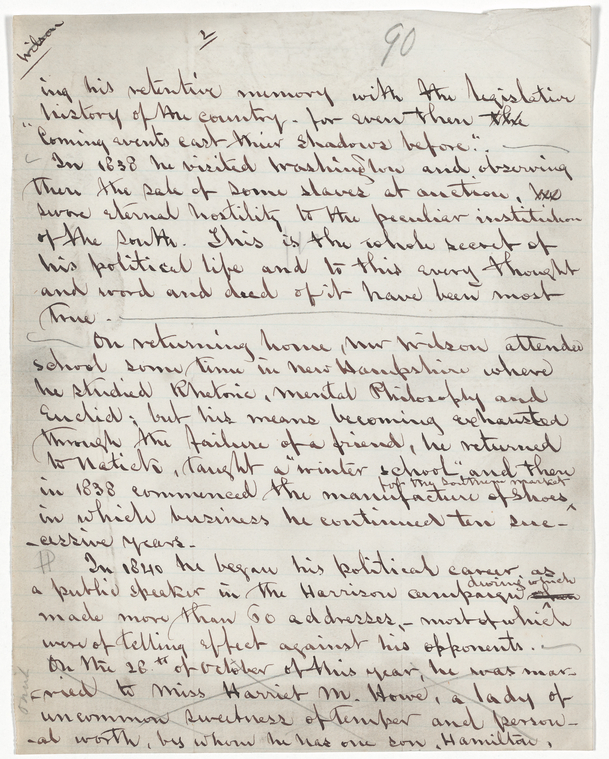 Wilson
2
90
ing his retentive memory with the legislative
history of the country. for even then the
"Coming events cast thier shadows before".
In 1838 he visited Washington and observing
then the sale of some slaves at auction,
swore eternal hostility to the peculiar institution
of the South. This is the whole secret of
his political life and to this every thought
and word and deed of it have been most
true.
On returning home, Mr Wilson attended
school some time in New Hampshire where
he studied Rhetoric, Mental Philosophy and
Euclid; but his means becoming exhausted
through the failure of a friend, he returned
to Natick, taught a "winter school" and then
for the Southern market
in 1838 commenced the manufacture of shoes ^
in which business he continued ten suc-
-cessive years.
In 1840 he began his political career as
during which
a public speaker in the Harrison campaign
made more than 60 addresses,- most of which
were of telling effect against his opponents.
On the 28th of October of this year, he was mar-
-ried to Miss Harriet M. Howe, a lady of
uncommon sweetness of temper and person-
-al worth, by whom he has one son, Hamilton,